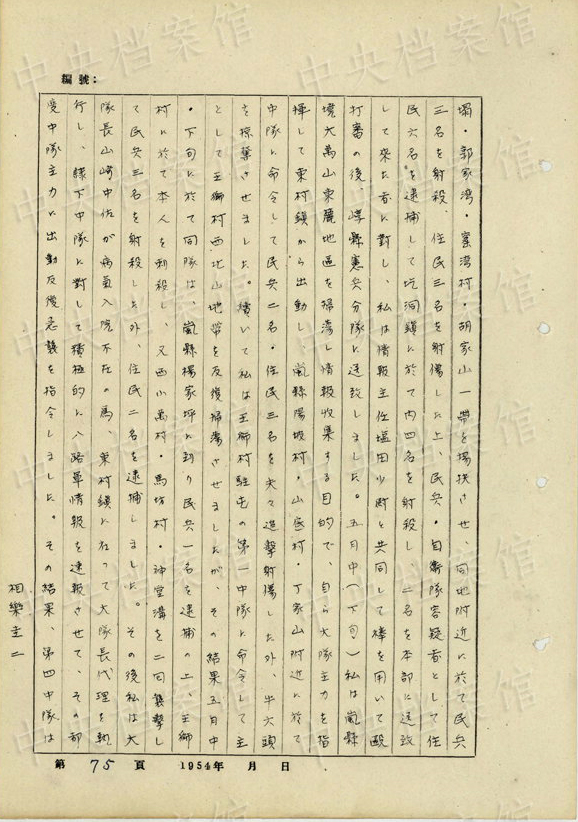 編號：
塌・郭家湾・窰湾村・胡家山一帶を掃挟させ、同地附近に於て民兵
三名を射殺、住民三名を射傷した上、民兵・自衛隊容疑者として住
民六名を逮捕して圪洞鎮に於て内四名を射殺し、二名を本部に送致
して来た者に対し、私は情報主任塩田少尉と共同して棒を用いて殴
打審の後、崞縣憲兵分隊に送致しました。五月中（下旬）私は嵐縣
境大萬山東麓地區を掃蕩し情報収集する目的で、自ら大隊主力を指
揮して東村鎮から出動し、嵐縣陽坡村・山底村・丁家山附近に於て
中隊に命令して民兵二名・住民三名を夫々追撃射傷した外、牛六頭
を掠奪させました。續いて私は王獅村駐屯の第一中隊に命令して主
として王獅村西北山地帶を反復掃蕩させましたが、その結果五月中
・下旬に於て同隊は、嵐縣楊家坪に到り民兵一名を逮捕の上、王獅
村に於て本人を刺殺し、又西小萬村・馬坊村・神堂溝を二回襲撃し
て民兵三名を射殺した外、住民二名を逮捕しました。その後私は大
隊長山崎中佐が病氣入院不在の爲、東村鎮に在って大隊長代理を執
行し、隷下中隊に對して積極的に八路軍情報を速報させて、その都
度中隊主力に出動反復急襲を指令しました。その結果、第四中隊は
相樂圭二
第 75 頁 1954年 月 日
中央档案馆